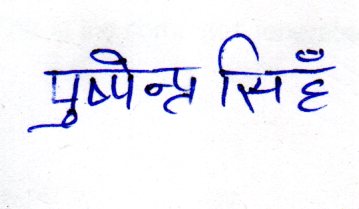 पुष्पेन्द्र सिहँ